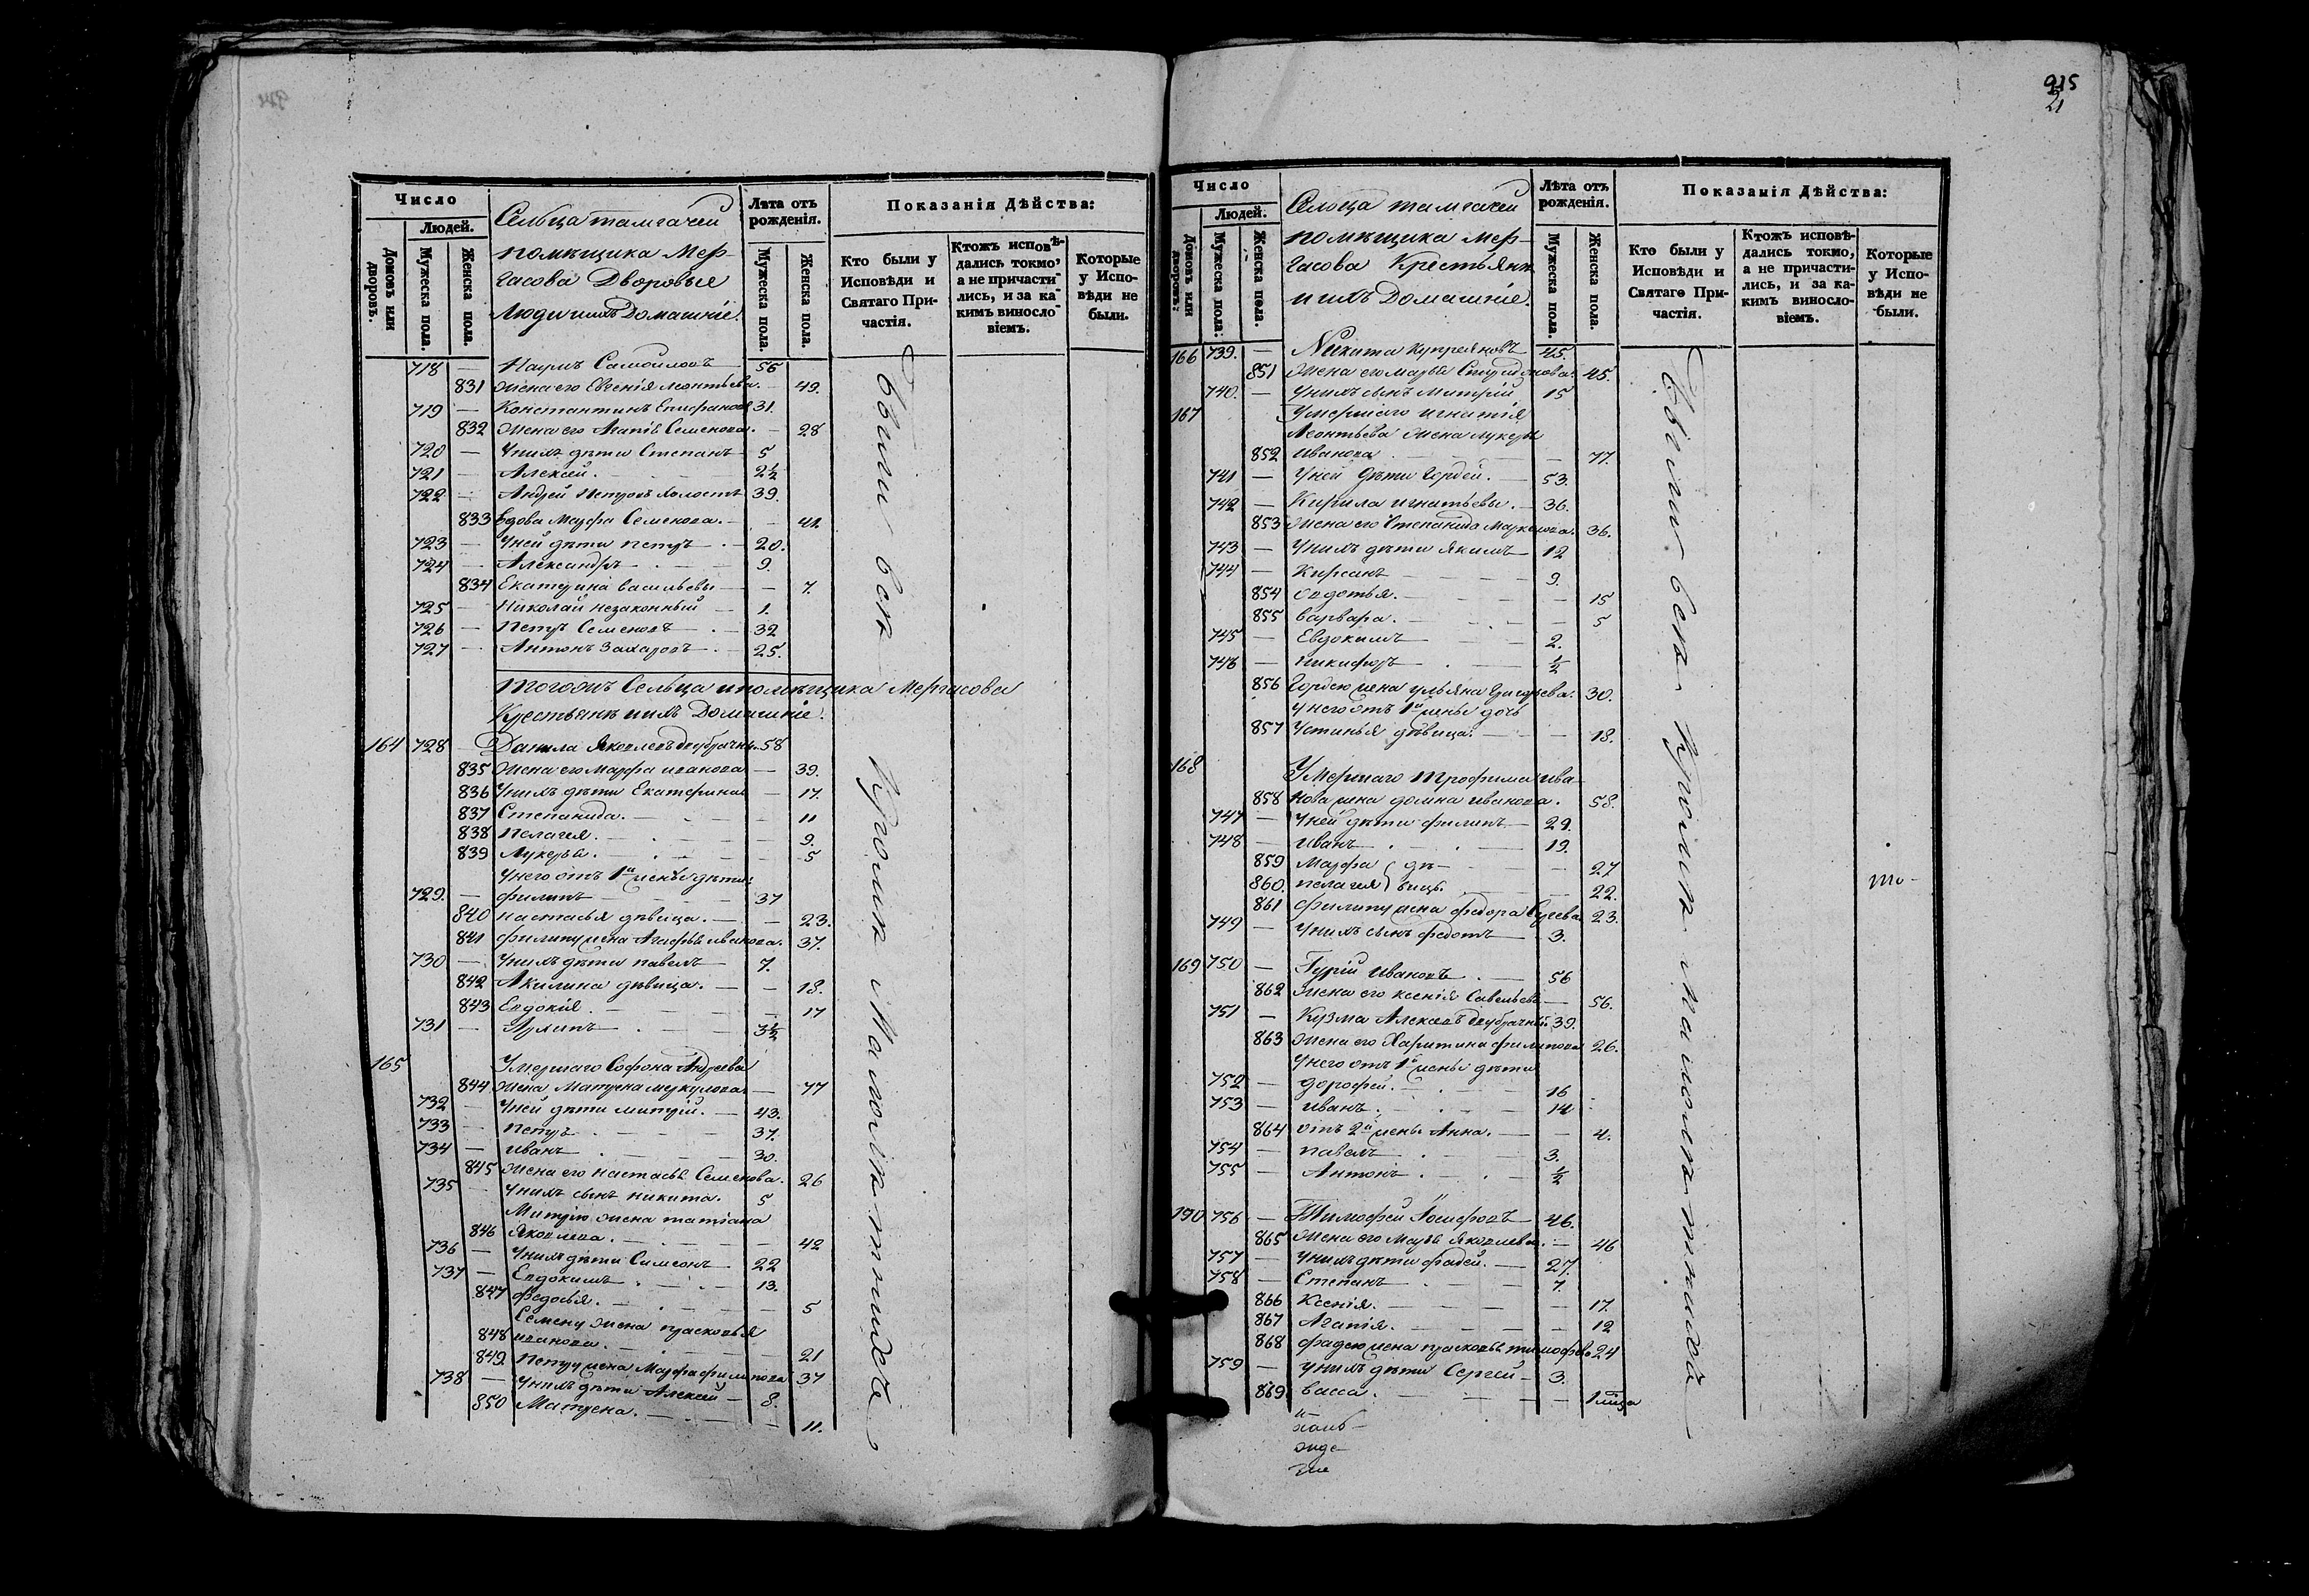 915
21
Число
Людей.
Домовъ или дворовъ.
Мужеска пола.
Женска пола.
Сельца тамгачей
помѣщика Мер-
гасова Дворовые
Люди и ихъ Домашніе.
Лѣта отъ рожденія.
Мужеска пола.
Женска пола.
Показанія Дѣйства:
Кто были у Исповѣди и Святаго Причастія.
Ктожъ исповѣдались токмо, а не причастились, и за какимъ винословіемъ.
Которые у Исповѣди не были.
718 — Наумъ Самойловъ 56
831 Жена его Евгенія Леонтьева. — 49.
719 — Константинъ Епифановъ 31.
832 Жена его Агапія Семенова. — 28
720 — У нихъ дѣти Степанъ 5
721 — Алексей. 2½
722 — Андрей Петровъ холостъ 39.
833 Вдова Марфа Семенова. — 41.
723 — У ней дѣти Петръ 20.
724 — Александръ 9.
834 Екатерина Васильевы — 7.
725 — Николай незаконный 1.
726 — Петръ Семеновъ 32
727 — Антонъ Захаровъ 25.
Тогожъ Сельца и помѣщика Мергасова
Крестьянъ и ихъ Домашніе.
164 728 — Данила Яковлевъ двубрачн. 58
835 Жена его Марфа Иванова — 39.
836 У нихъ дѣти Екатерина — 17.
837 Степанида. — 11
838 Пелагея. — 9.
839 Лукерья. — 5
У него отъ 1й жены дѣти:
729. — Филипъ 37
840 Настасья дѣвица. — 23.
841 Филипу жена Агафья Иванова. 37.
730 — У нихъ дѣти Павелъ 7.
842 Акилина дѣвица. — 18.
843 Евдокія. — 17
731 — 3½
165 Умершаго Софона Андреева
844 Жена Матрена Меркулова — 77
732 — У ней дѣти Митрій. 43.
733 — Петръ 37.
734 — Иванъ 30.
845 Жена его Настасья Семенова. 26
735 — У нихъ сынъ Никита. 5
Митрію жена Татіана
846 Яковлева. — 42
736 — У нихъ дѣти Симеонъ 22
737 — Евдокимъ 13.
847 Федосья. — 5
Семену жена Прасковья
848 Иванова. — 21
849 Петру жена Марфа Филипова 37
738 — У нихъ дѣти Алексей 8.
850 Матрена. — 11.
Были всѣ кромѣ малолѣтнихъ
Число
Людей.
Домовъ или дворовъ.
Мужеска пола.
Женска пола.
Сельца тамгачей
помѣщика Мер-
гасова Крестьянъ
и ихъ Домашніе.
Лѣта отъ рожденія.
Мужеска пола.
Женска пола.
Показанія Дѣйства:
Кто были у Исповѣди и Святаго Причастія.
Ктожъ исповѣдались токмо, а не причастились, и за какимъ винословіемъ.
Которые у Исповѣди не были.
166 739. — Никита Купреяновъ 45.
851 Жена его Марья Спиридонова. 45.
740. — У нихъ сынъ Митрій 15
167 Умершаго Игнатія
Леонтьева жена Лукерья
852 Иванова — 77.
741 — У ней дѣти Гордей. 53.
742 — Кирила Игнатьевы. 36.
853 Жена его Степанида Маркелова. 36.
743 — У нихъ дѣти Якимъ 12
744 — Кирсанъ 9.
854 Авдотья. — 15
855 Варвара. — 5
745 — Евдокимъ 2.
746 — Никифоръ ½
856 Гордею жена Ульяна Григорьева. 30.
У него отъ 1й жены дочь
857 Устинья дѣвица. — 18.
168 Умершаго Трофима Ива-
858 нова жена Домна Иванова. 58.
747 — У ней дѣти Филипъ 29.
748 — Иванъ 19.
859 Марфа } дѣ- 27
860. Пелагея } вицы. 22.
861 Филипу жена Федора Сергеева 23.
749 — У нихъ сынъ Федотъ 3.
169 750 — Гурій Ивановъ 56
862 Жена его Ксенія Савельева 56.
751 — Кузма Алексеевъ двубрачный 39.
863 Жена его Харитина Филипова 26.
У него отъ 1й жены дѣти
752 — Дорофей. 16
753 — Иванъ. 14
864 отъ 2й жены Анна. — 4.
754 — Павелъ 3.
755 — Антонъ ½
190 756 — Тимофей Іосифовъ 46.
865 Жена его Марья Яковлева. 46
757 — У нихъ дѣти Фадей. 27.
758 — Степанъ 7.
866 Ксенія. — 17.
867 Агапія. — 12
868 Фадею жена Прасковья Тимофѣе 24
759 — У нихъ дѣти Сергей 3.
869 Васса. — 1
Были всѣ кромѣ малолѣтныхъ